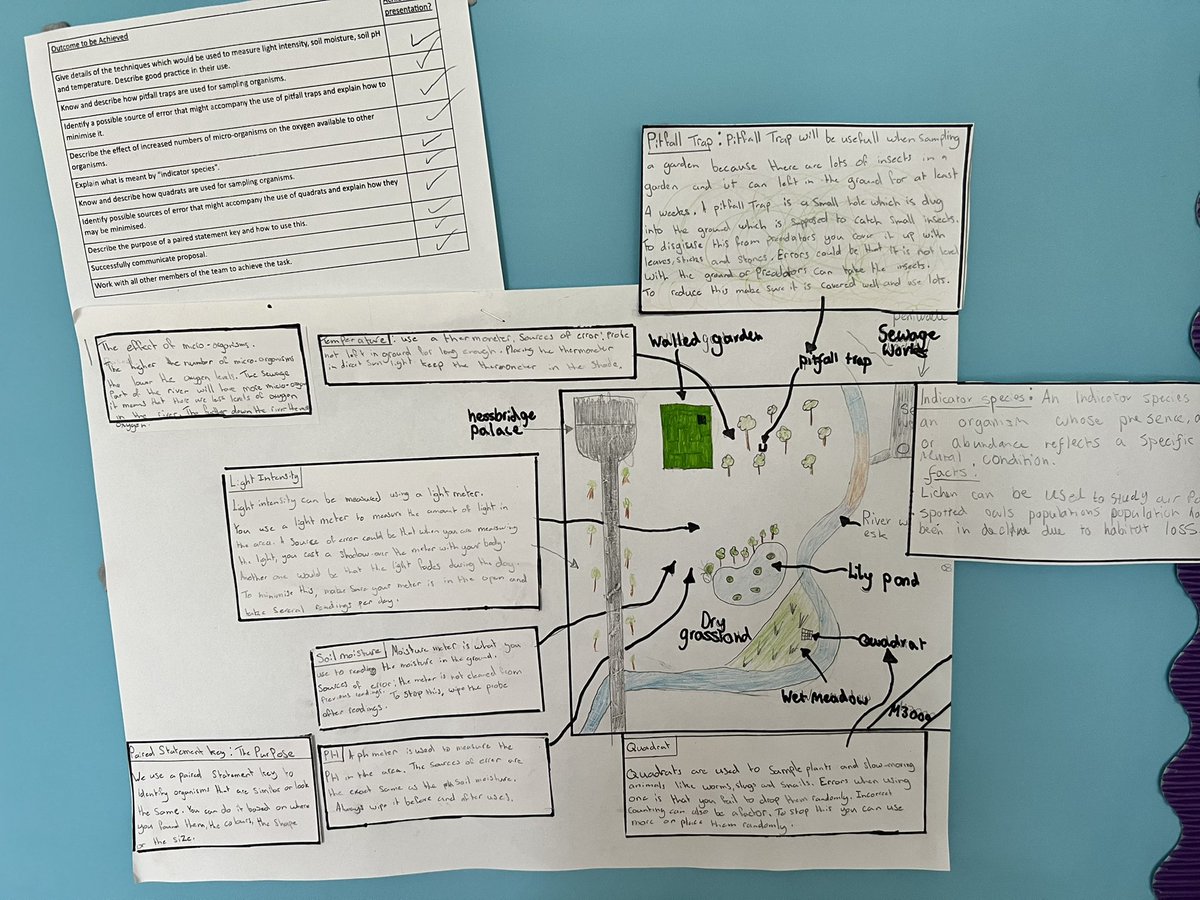 Outcome to be Achieved
presentation?
Give details of the techniques which would be used to measure light intensity, soil moisture, soil pH
and temperature. Describe good practice in their use.
Know and describe how pitfall traps are used for sampling organisms.
Identify a possible source of error that might accompany the use of pitfall traps and explain how to
minimise it.
Describe the effect of increased numbers of micro-organisms on the oxygen available to other
organisms.
Explain what is meant by "indicator species".
Know and describe how quadrats are used for sampling organisms.
Identify possible sources of error that might accompany the use of quadrats and explain how they
may be minimised.
Describe the purpose of a paired statement key and how to use this.
Successfully communicate proposal.
Work with all other members of the team to achieve the task.
Pitfall Trap: Pitfall Trap will be usefull when sampling
a garden because there are lots of insects in a
garden and it can left in the ground for at least
4 weeks. A pitfall Trap is a small hole which is dug
into the ground which is supposed to catch small insects.
To disguise this from predators you cover it up with
leaves, sticks and stones. Errors could be that it is not level
with the ground or Predators can take the insects.
To reduce this make sure it is covered well and use lots.
The effect of micro-organisms.
The higher the number of micro-organisms
the lower the oxygen levels. The sewage
part of the river will have more micro-organ
it means that there are less levels of oxygen
in the river. The further down the river the
oxygen.
Temperature: use a thermometer. Sources of error: Probe
not left in ground for long enough. Placing the thermometer
in direct sunlight keep the thermometer in the shade.
Walled garden
pitfall trap
Sewage
works
hessbridge
palace
Indicator species: An Indicator species
an organism whose presence, a
or abundance reflects a specific
condition.
facts:
Lichen can be used to study air Po
spotted owls populations population ha
been in decline due to habitat loss.
Light Intensity
Light intensity can be measured using a light meter.
You use a light meter to measure the amount of light in
the area. A source of error could be that when you are measuring
the light, you cast a shadow over the meter with your body.
Another one would be that the light fades during the day.
To minimise this, make sure your meter is in the open and
take several readings per day.
River
esk
Lily pond
Dry
grassland
Quadrat
Wet meadow
M300a
Soil moisture Moisture meter is what you
use to reading the moisture in the ground.
Sources of error; the meter is not cleared from
previous readings. To stop this, wipe the probe
after readings.
Paired Statement key: The Purpose
We use a paired statement key to
identify organisms that are similar or look
the same. You can do it based on where
you found them, the colours, the shape
or the size.
PH A ph meter is used to measure the
PH in the area. The sources of error are
the exact same as the soil moisture.
Always wipe it before and after uses.
Quadrat
Quadrats are used to sample plants and slow-moving
animals like worms, slugs and snails. Errors when using
one is that you fail to drop them randomly. Incorrect
counting can also be a factor. To stop this you can use
more or place them randomly.